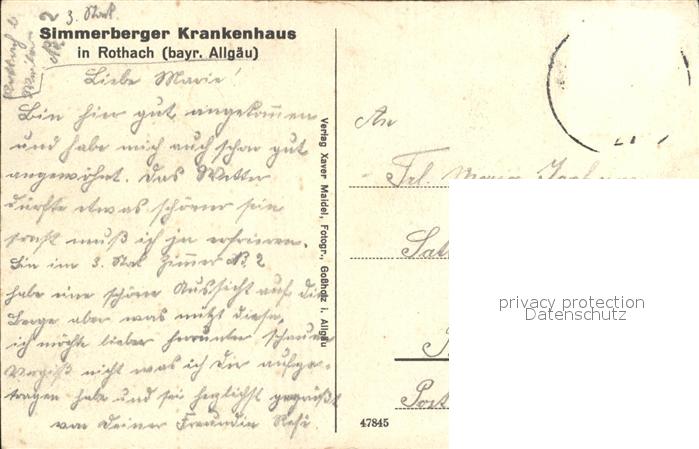 3. Stok
Simmerberger Krankenhaus
in Rothach (bayr. Allgäu)
Liebe Marie!
Bin hier gut angekommen
und habe mich auch schon gut
angewöhnt. Das Wetter
dürfte etwas schöner sein
sonst muß ich ja erfrieren.
Bin im 3. Stok Zimmer No. 2
habe eine schöne Aussicht auf die
Berge aber was nützt diese,
ich möchte lieber herunter schauen
Vergiß nicht was ich Dir aufge-
tragen habe und sei herzlichst gegrüßt
von Deiner Freundin Resi.
Verlag Xaver Maidel, Fotogr., Goßholz i. Allgäu
An
Frl. Maria
47845
privacy protection
Datenschutz